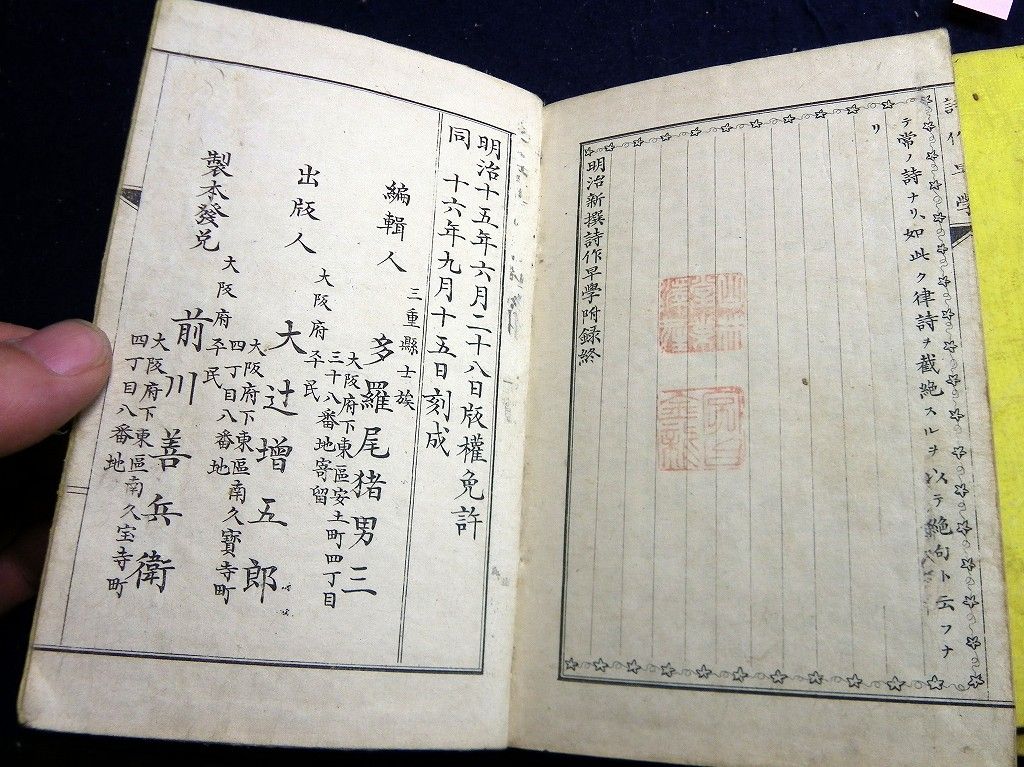 詩作早學
テ常ノ詩ナリ、如此ク律詩ヲ截絶スルヲ以テ絶句ト云フナ
リ
明治新撰詩作早學附録終
明治十五年六月二十八日版權免許
同 十六年九月十五日刻成
編輯人
三重縣士族
多羅尾猪男三
大阪府下東區安土町四丁目
三十八番地寄留
出版人
大阪府平民
大辻增五郎
大阪府下東區南久寶寺町
四丁目八番地
製本發兌
大阪府平民
前川善兵衛
大阪府下東區南久宝寺町
四丁目八番地